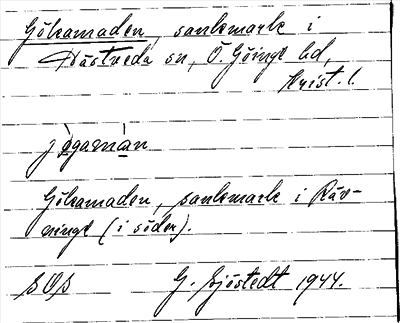 Gökamaden, sankmark i
Hästveda sn, Ö. Göinge hd,
Krist. l.
jògamàn
Gökamaden, sankmark i Räv-
ninge (i söder).
SOS G. Sjöstedt 1944.